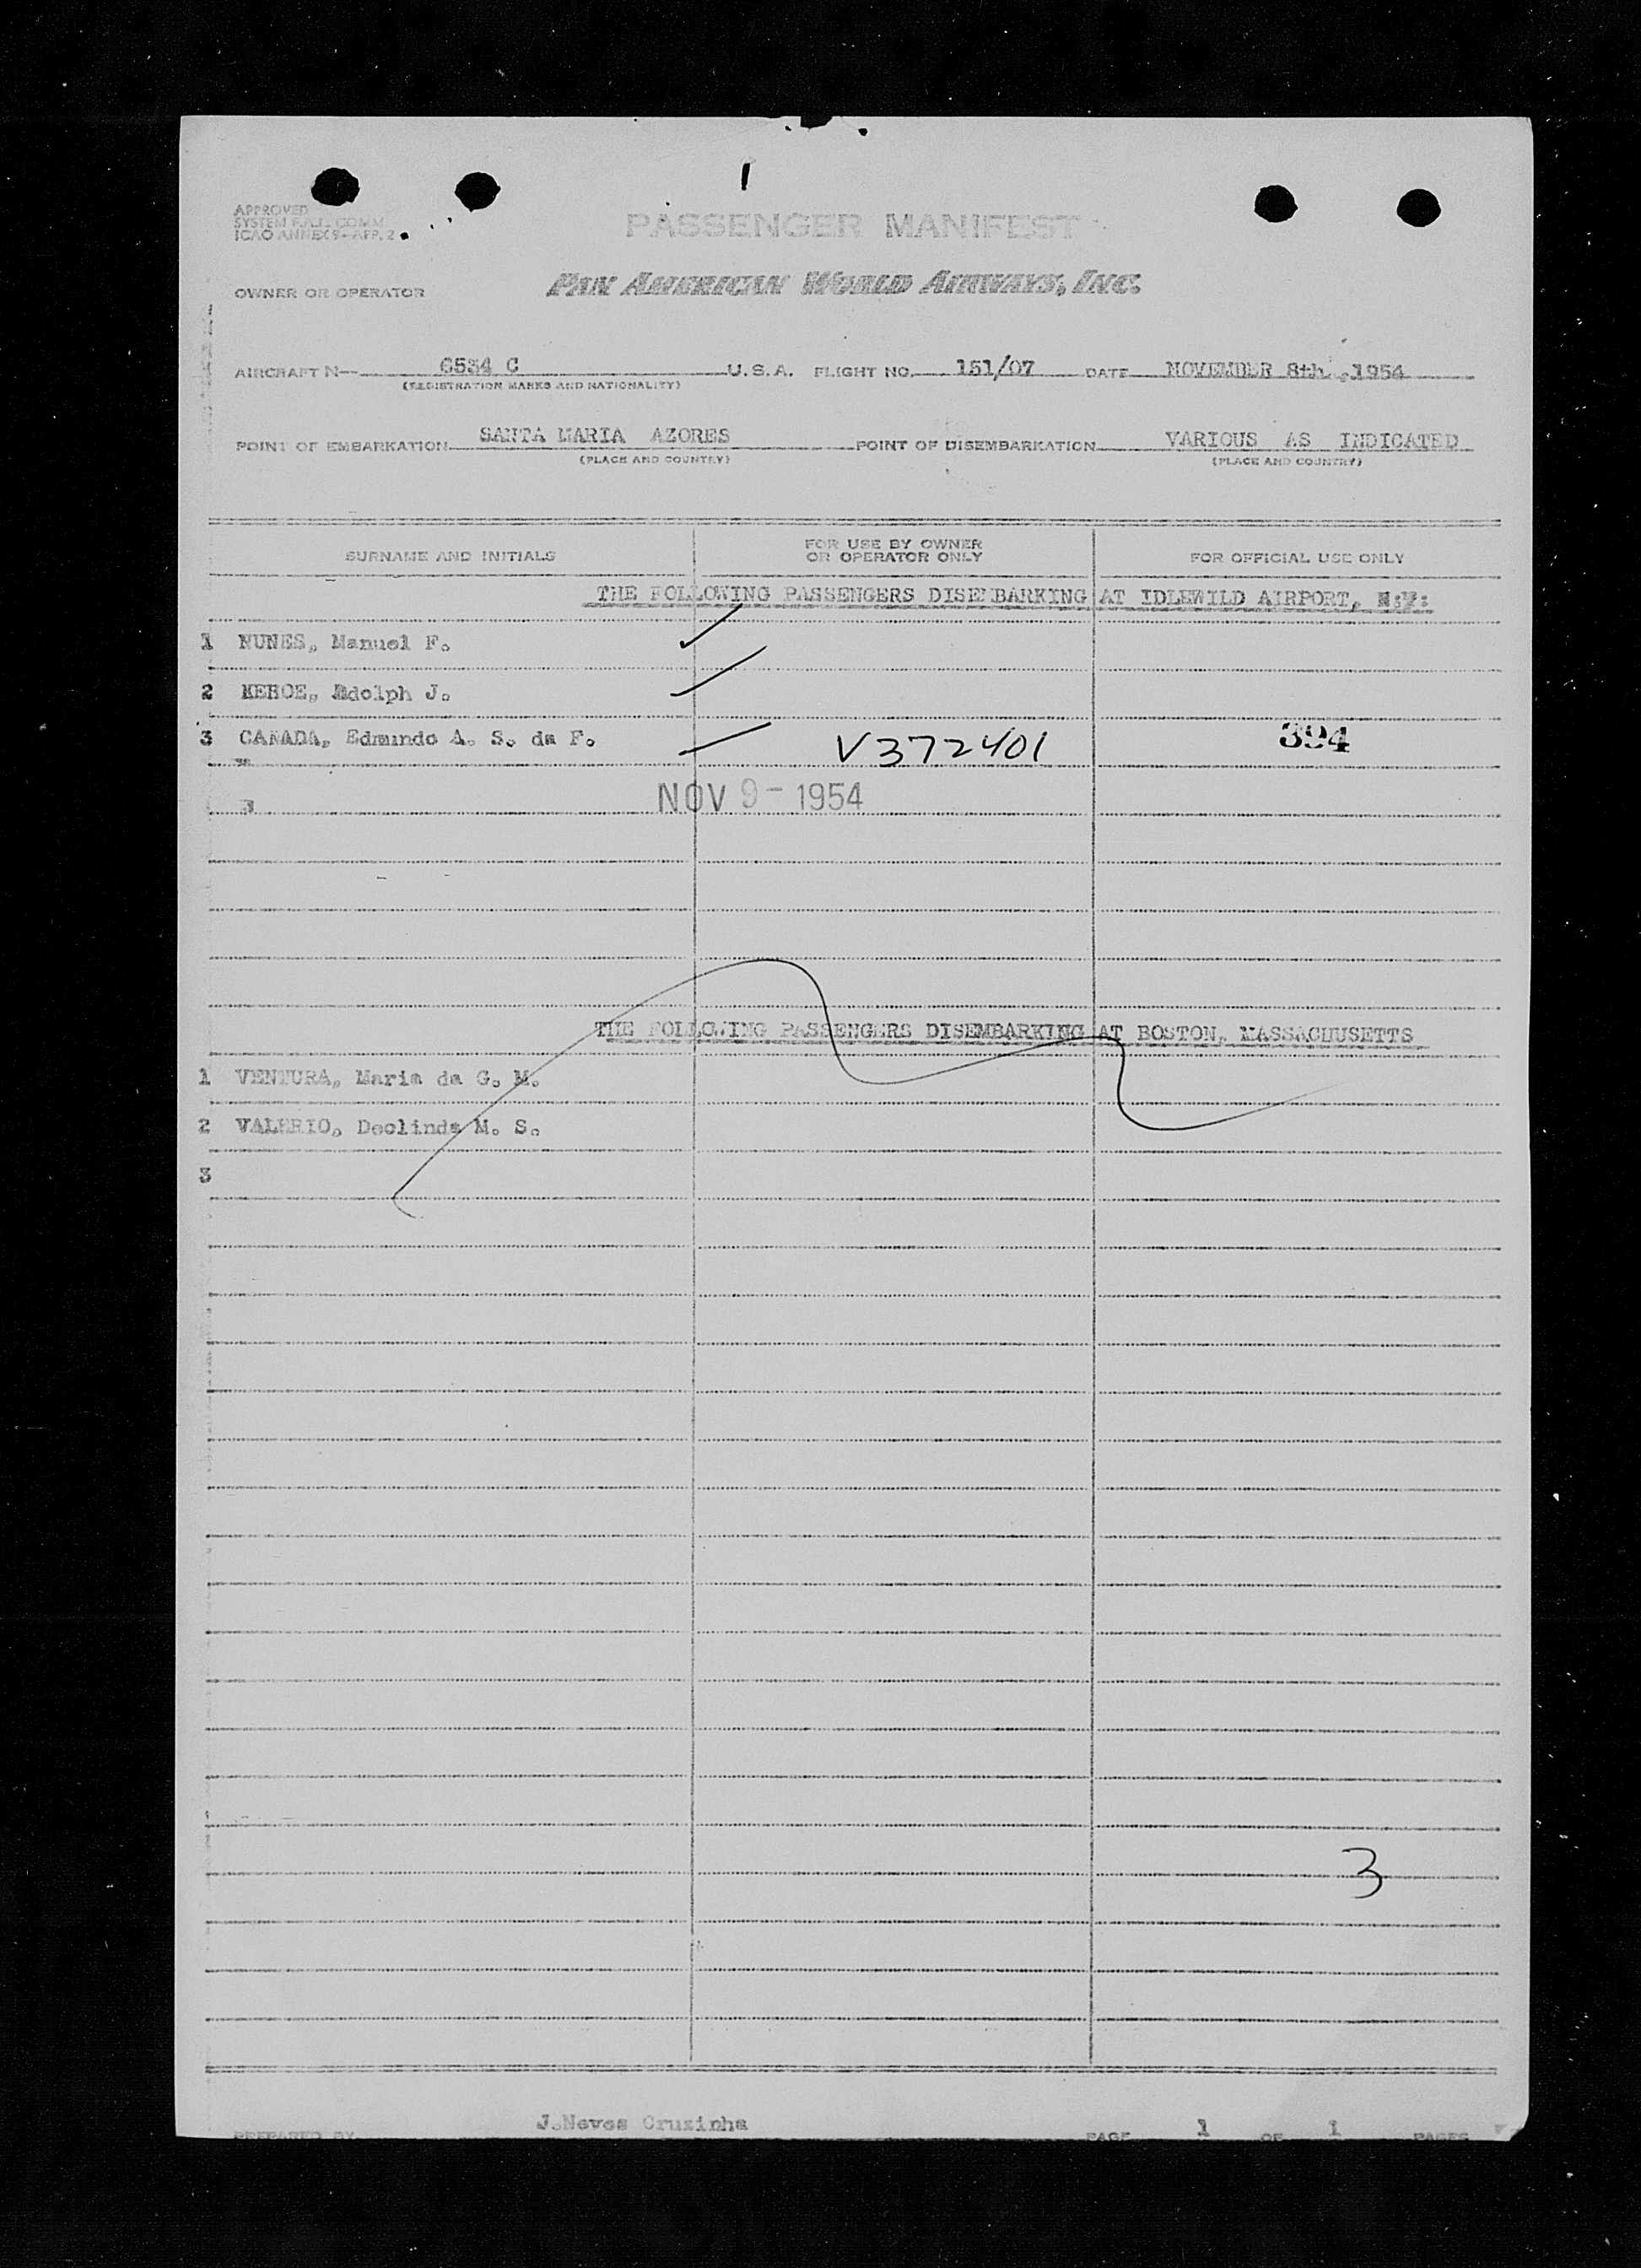 1
APPROVED
SYSTEM F.A.L. COMM
ICAO ANNEX 9-APP. 2
PASSENGER MANIFEST
OWNER OR OPERATOR PAN AMERICAN WORLD AIRWAYS, INC.
AIRCRAFT N- 6534 C U.S.A. FLIGHT NO. 151/07 DATE NOVEMBER 8th, 1954
(REGISTRATION MARKS AND NATIONALITY)
POINT OF EMBARKATION SANTA MARIA AZORES POINT OF DISEMBARKATION VARIOUS AS INDICATED
(PLACE AND COUNTRY) (PLACE AND COUNTRY)
SURNAME AND INITIALS FOR USE BY OWNER OR OPERATOR ONLY FOR OFFICIAL USE ONLY
THE FOLLOWING PASSENGERS DISEMBARKING AT IDLEWILD AIRPORT, N:Y:
1 NUNES, Manuel F.
2 KEHOE, Adolph J.
3 CANADA, Edmundo A. S. da F. V372401 394
NOV 9- 1954
THE FOLLOWING PASSENGERS DISEMBARKING AT BOSTON, MASSACHUSETTS
1 VENTURA, Maria da G. M.
2 VALERIO, Deolinda M. S.
3
3
PREPARED BY J.Neves Cruzinha PAGE 1 OF 1 PAGES